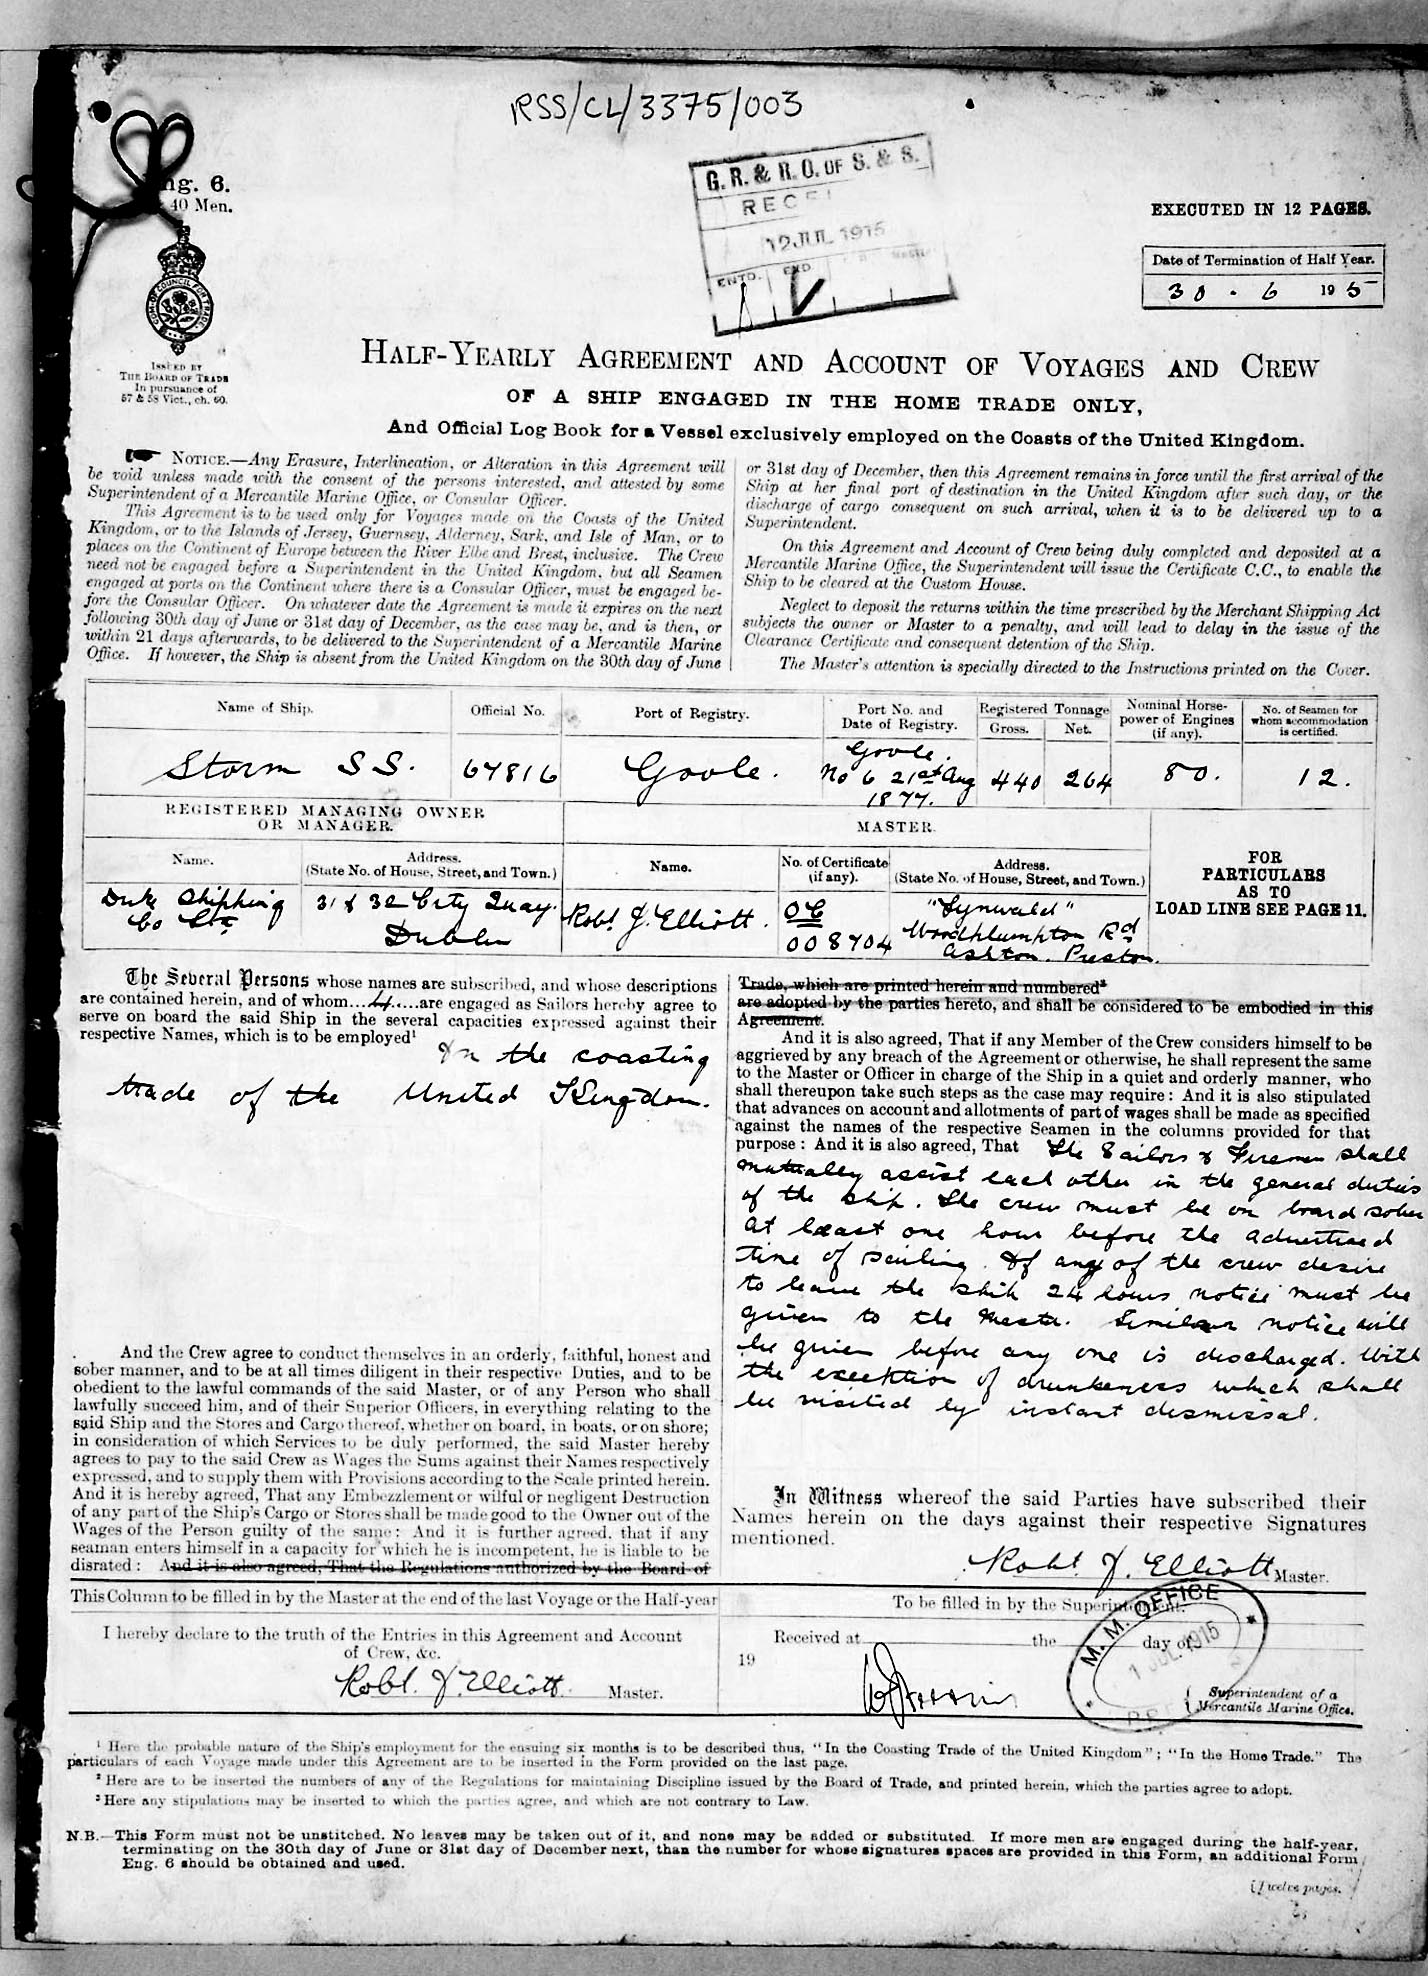 RSS/CL/3375/003
G. R. & R. O. OF S. & S.
12 JUL 1915
ENTD. END
ng. 6.
40 Men.
EXECUTED IN 12 PAGES.
Date of Termination of Half Year.
30 . 6 1915
COM. OF COUNCIL FOR TRADE
ISSUED BY
THE BOARD OF TRADE
In pursuance of
57 & 58 Vict., ch. 60.
HALF-YEARLY AGREEMENT AND ACCOUNT OF VOYAGES AND CREW
OF A SHIP ENGAGED IN THE HOME TRADE ONLY,
And Official Log Book for a Vessel exclusively employed on the Coasts of the United Kingdom.
NOTICE.—Any Erasure, Interlineation, or Alteration in this Agreement will
be void unless made with the consent of the persons interested, and attested by some
Superintendent of a Mercantile Marine Office, or Consular Officer.
This Agreement is to be used only for Voyages made on the Coasts of the United
Kingdom, or to the Islands of Jersey, Guernsey, Alderney, Sark, and Isle of Man, or to
places on the Continent of Europe between the River Elbe and Brest, inclusive. The Crew
need not be engaged before a Superintendent in the United Kingdom, but all Seamen
engaged at ports on the Continent where there is a Consular Officer, must be engaged be-
fore the Consular Officer. On whatever date the Agreement is made it expires on the next
following 30th day of June or 31st day of December, as the case may be, and is then, or
within 21 days afterwards, to be delivered to the Superintendent of a Mercantile Marine
Office. If however, the Ship is absent from the United Kingdom on the 30th day of June
or 31st day of December, then this Agreement remains in force until the first arrival of the
Ship at her final port of destination in the United Kingdom after such day, or the
discharge of cargo consequent on such arrival, when it is to be delivered up to a
Superintendent.
On this Agreement and Account of Crew being duly completed and deposited at a
Mercantile Marine Office, the Superintendent will issue the Certificate C.C., to enable the
Ship to be cleared at the Custom House.
Neglect to deposit the returns within the time prescribed by the Merchant Shipping Act
subjects the owner or Master to a penalty, and will lead to delay in the issue of the
Clearance Certificate and consequent detention of the Ship.
The Master's attention is specially directed to the Instructions printed on the Cover.
Name of Ship. Official No. Port of Registry. Port No. and Date of Registry. Registered Tonnage Gross. Net. Nominal Horse-power of Engines (if any). No. of Seamen for whom accommodation is certified.
Storm SS. 67816 Goole. Goole. No 6 21st Aug 1877. 440 264 80. 12.
REGISTERED MANAGING OWNER OR MANAGER. MASTER.
Name. Address. (State No. of House, Street, and Town.) Name. No. of Certificate (if any). Address. (State No. of House, Street, and Town.)
FOR
PARTICULARS
AS TO
LOAD LINE SEE PAGE 11.
Duke Shipping 31 & 32 City Quay.
Co Ltd Dublin
Robt J. Elliott. OC
008704
"Tynwald"
Woodplumpton Rd
Ashton. Preston.
The Several Persons whose names are subscribed, and whose descriptions
are contained herein, and of whom...4....are engaged as Sailors hereby agree to
serve on board the said Ship in the several capacities expressed against their
respective Names, which is to be employed¹
In the coasting
trade of the United Kingdom.
And the Crew agree to conduct themselves in an orderly, faithful, honest and
sober manner, and to be at all times diligent in their respective Duties, and to be
obedient to the lawful commands of the said Master, or of any Person who shall
lawfully succeed him, and of their Superior Officers, in everything relating to the
said Ship and the Stores and Cargo thereof, whether on board, in boats, or on shore;
in consideration of which Services to be duly performed, the said Master hereby
agrees to pay to the said Crew as Wages the Sums against their Names respectively
expressed, and to supply them with Provisions according to the Scale printed herein.
And it is hereby agreed, That any Embezzlement or wilful or negligent Destruction
of any part of the Ship's Cargo or Stores shall be made good to the Owner out of the
Wages of the Person guilty of the same: And it is further agreed, that if any
seaman enters himself in a capacity for which he is incompetent, he is liable to be
disrated: And it is also agreed, That the Regulations authorized by the Board of
Trade, which are printed herein and numbered²
are adopted by the parties hereto, and shall be considered to be embodied in this
Agreement.
And it is also agreed, That if any Member of the Crew considers himself to be
aggrieved by any breach of the Agreement or otherwise, he shall represent the same
to the Master or Officer in charge of the Ship in a quiet and orderly manner, who
shall thereupon take such steps as the case may require: And it is also stipulated
that advances on account and allotments of part of wages shall be made as specified
against the names of the respective Seamen in the columns provided for that
purpose: And it is also agreed, That The Sailors & Firemen shall
mutually assist each other in the general duties
of the ship. The crew must be on board sober
at least one hour before the advertised
time of sailing. If any of the crew desire
to leave the ship 24 hours notice must be
given to the Master. Similar notice will
be given before any one is discharged. With
the exception of drunkeness which shall
be visited by instant dismissal.
In Witness whereof the said Parties have subscribed their
Names herein on the days against their respective Signatures
mentioned.
Robt. J. Elliott Master.
This Column to be filled in by the Master at the end of the last Voyage or the Half-year
I hereby declare to the truth of the Entries in this Agreement and Account
of Crew, &c.
Robt. J. Elliott Master.
To be filled in by the Superintendent.
Received at the day of
19
Superintendent of a
Mercantile Marine Office.
M. M. OFFICE
1 JUL 1915
¹ Here the probable nature of the Ship's employment for the ensuing six months is to be described thus, "In the Coasting Trade of the United Kingdom"; "In the Home Trade." The
particulars of each Voyage made under this Agreement are to be inserted in the Form provided on the last page.
² Here are to be inserted the numbers of any of the Regulations for maintaining Discipline issued by the Board of Trade, and printed herein, which the parties agree to adopt.
³ Here any stipulations may be inserted to which the parties agree, and which are not contrary to Law.
N.B.—This Form must not be unstitched. No leaves may be taken out of it, and none may be added or substituted. If more men are engaged during the half-year,
terminating on the 30th day of June or 31st day of December next, than the number for whose signatures spaces are provided in this Form, an additional Form
Eng. 6 should be obtained and used.
[Twelve pages.